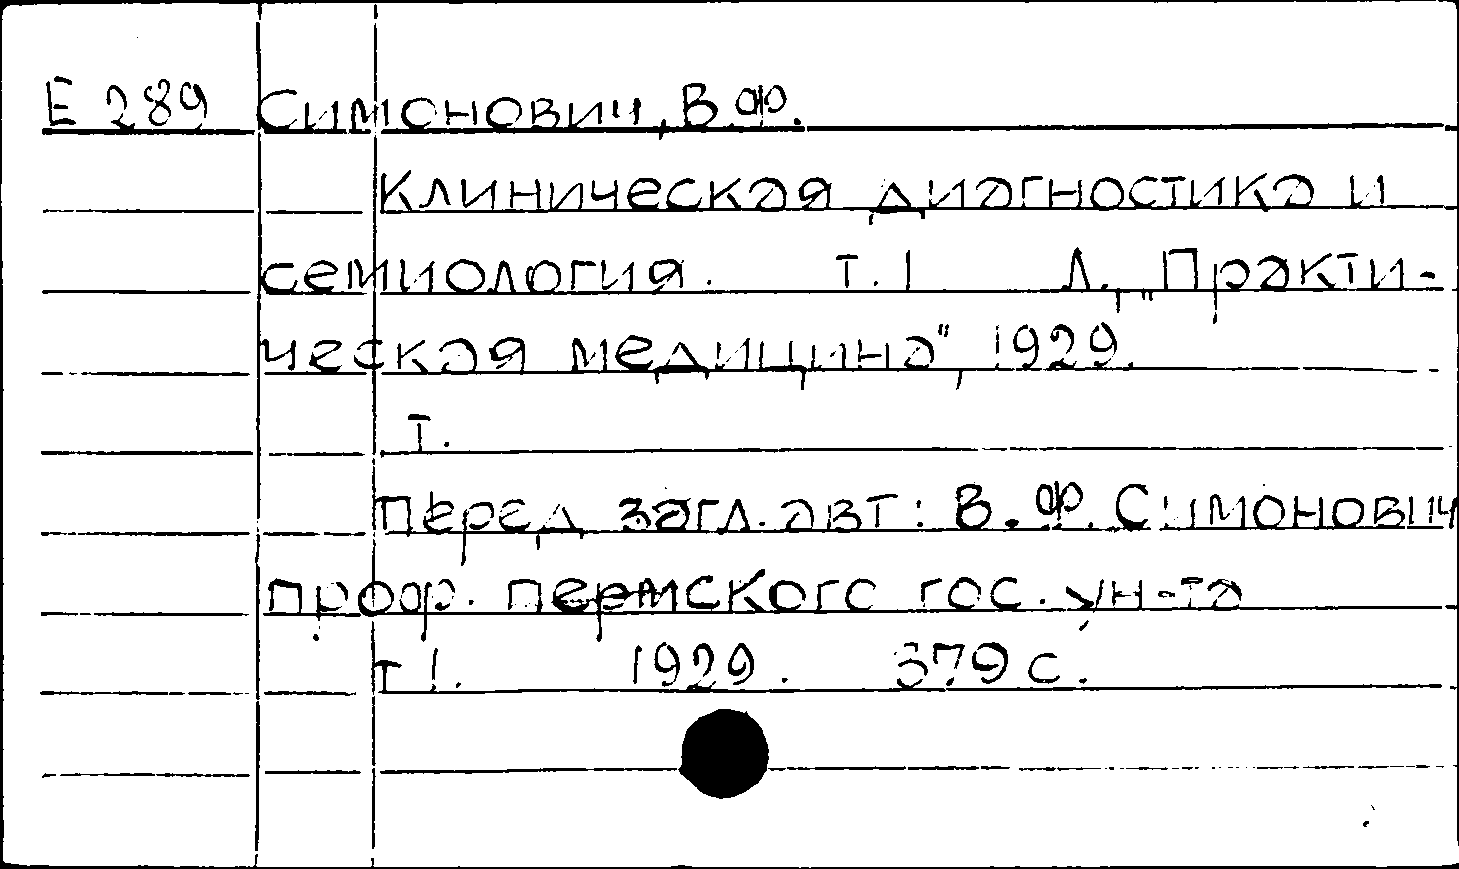 Е 289 Симонович, В.Ф.
Клиническая диагностика и
семиология. т. 1 Л., „Практи-
ческая медицина", 1929.
т.
Перед загл. авт: В.Ф. Симонович
проф. пермского гос. ун-та
т 1. 1929. 379 с.